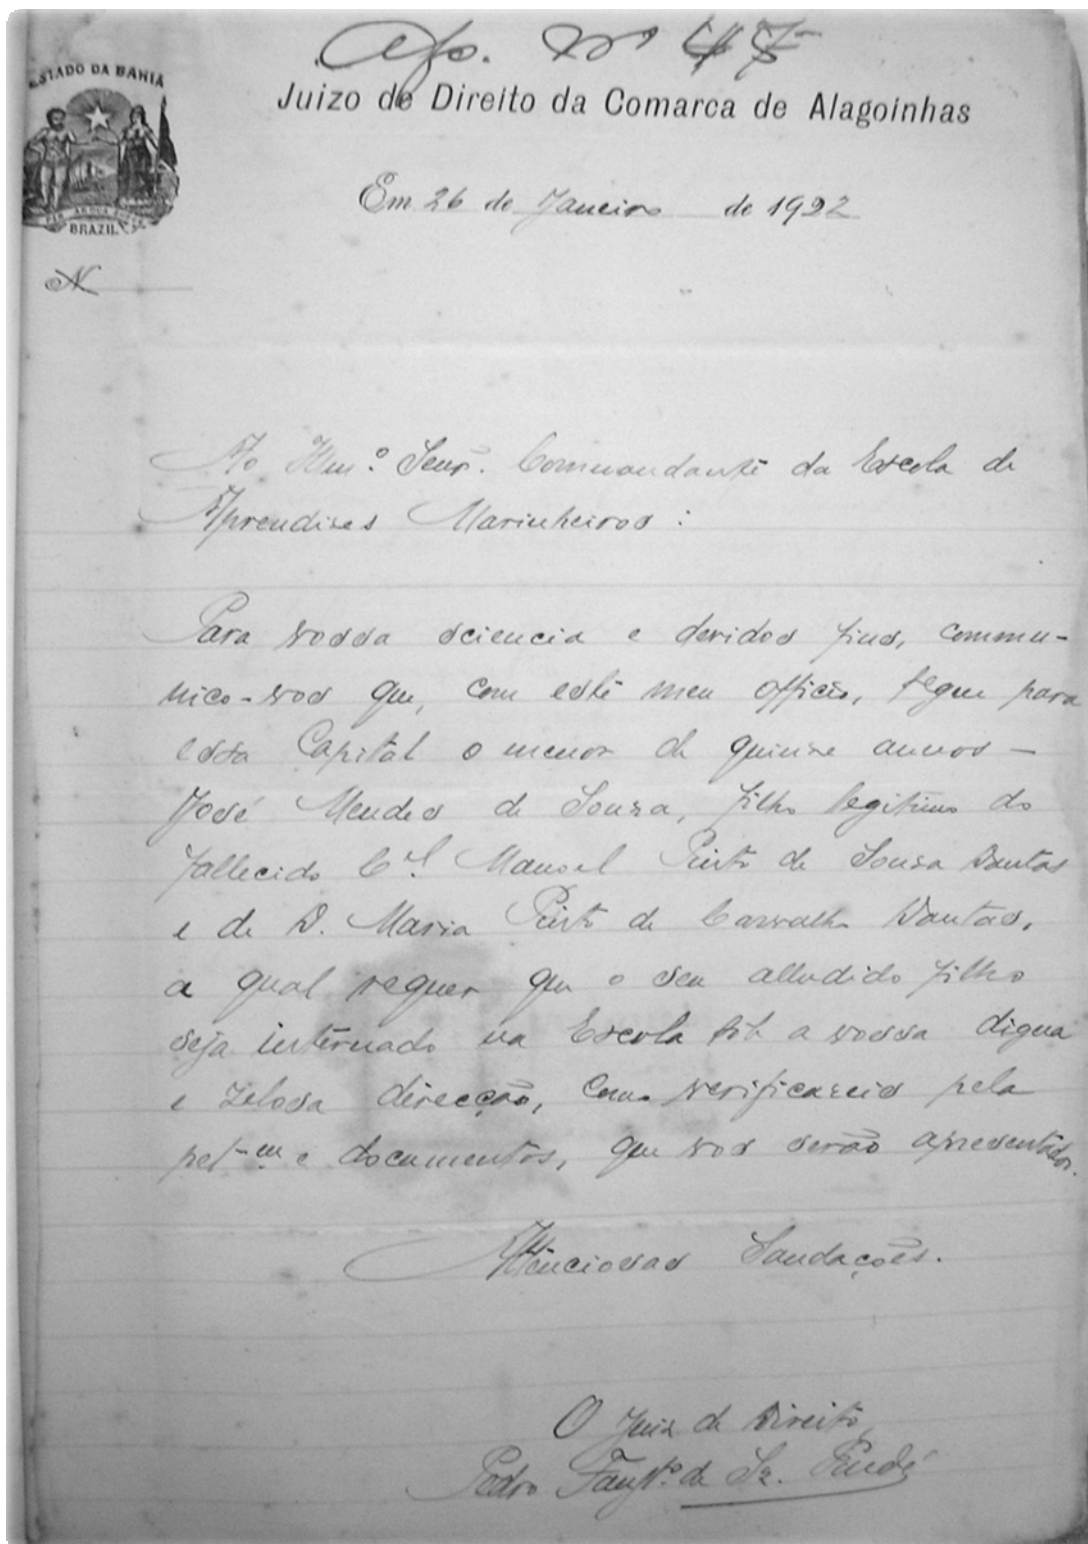 Ap. Nº 47
ESTADO DA BAHIA
Juizo de Direito da Comarca de Alagoinhas
Em 26 de Janeiro de 1922
BRAZIL
N
Ao Illmº. Senr. Commandante da Escola de
Aprendises Marinheiros:
Para vossa sciencia e devidos fins, commu-
nico-vos que, com este meu officio, segue para
essa Capital o menor de quinze annos —
José Mendes de Souza, filho legitimo do
fallecido Cel. Manoel Pinto de Souza Dantas
e de D. Maria Pinto de Carvalho Dantas,
a qual requer que o seu alludido filho
seja internado na Escola sob a vossa digna
e zelosa direcção, como verificareis pela
pet-em e documentos, que vos serão apresentados.
Attenciosas Saudações.
O Juiz de Direito,
Pedro Faustº. de Sz.